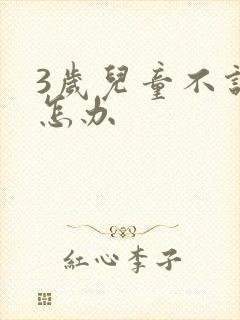 3歲兒童不
怎办
紅心李子